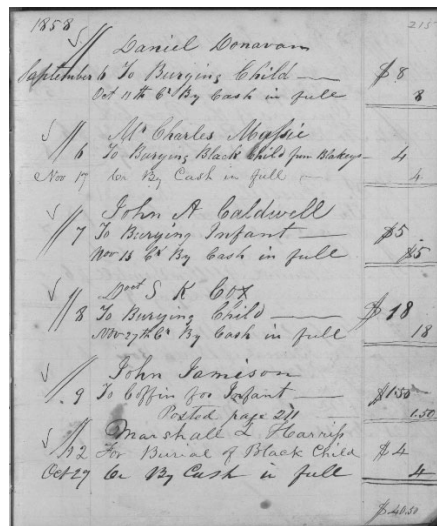 1858 215
Daniel Donavan
September 6 To Burying Child — $8
Oct 11th Cr By Cash in full 8
Mr Charles Massie
6 To Burying Black Child from Blakeys - 4
Nov 17 Cr By Cash in full — 4
John A Caldwell
7 To Burying Infant — $5
Nov 15 Cr By Cash in full $5
Doct S K Cox
8 To Burying Child — $18
Nov 27th Cr By Cash in full 18
John Jamison
9 To Coffin for Infant — $1.50
Posted page 211 1.50
Marshall L Harriss
12 For Burial of Black Child $4
Oct 27 Cr By Cash in full 4
$40.50